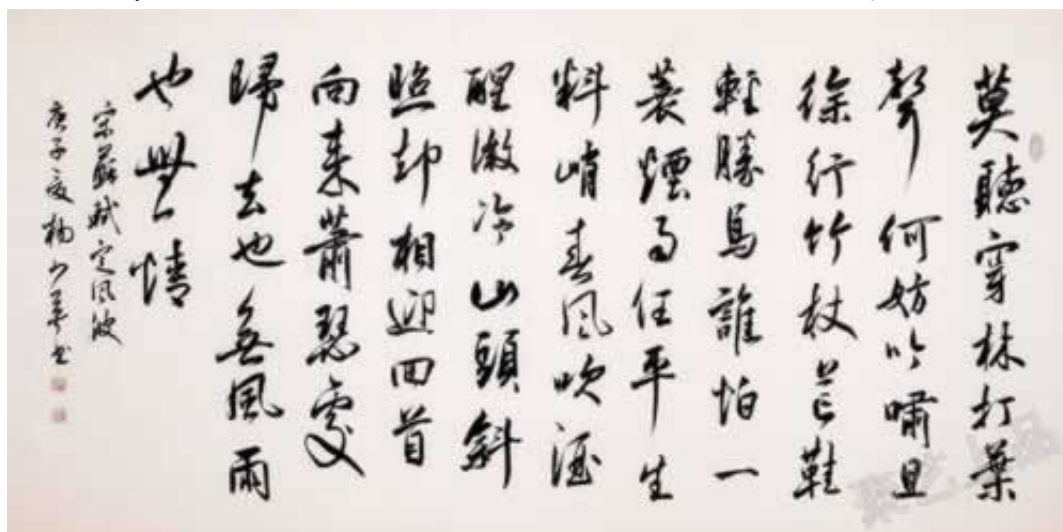 莫聽穿林打葉
聲何妨吟嘯且
徐行竹杖芒鞋
輕勝馬誰怕一
蓑煙雨任平生
料峭春风吹酒
醒微冷山頭斜
照却相迎回首
向来蕭瑟處
歸去也無風雨
也無情
宋蘇軾定风波
庚子夏楊書